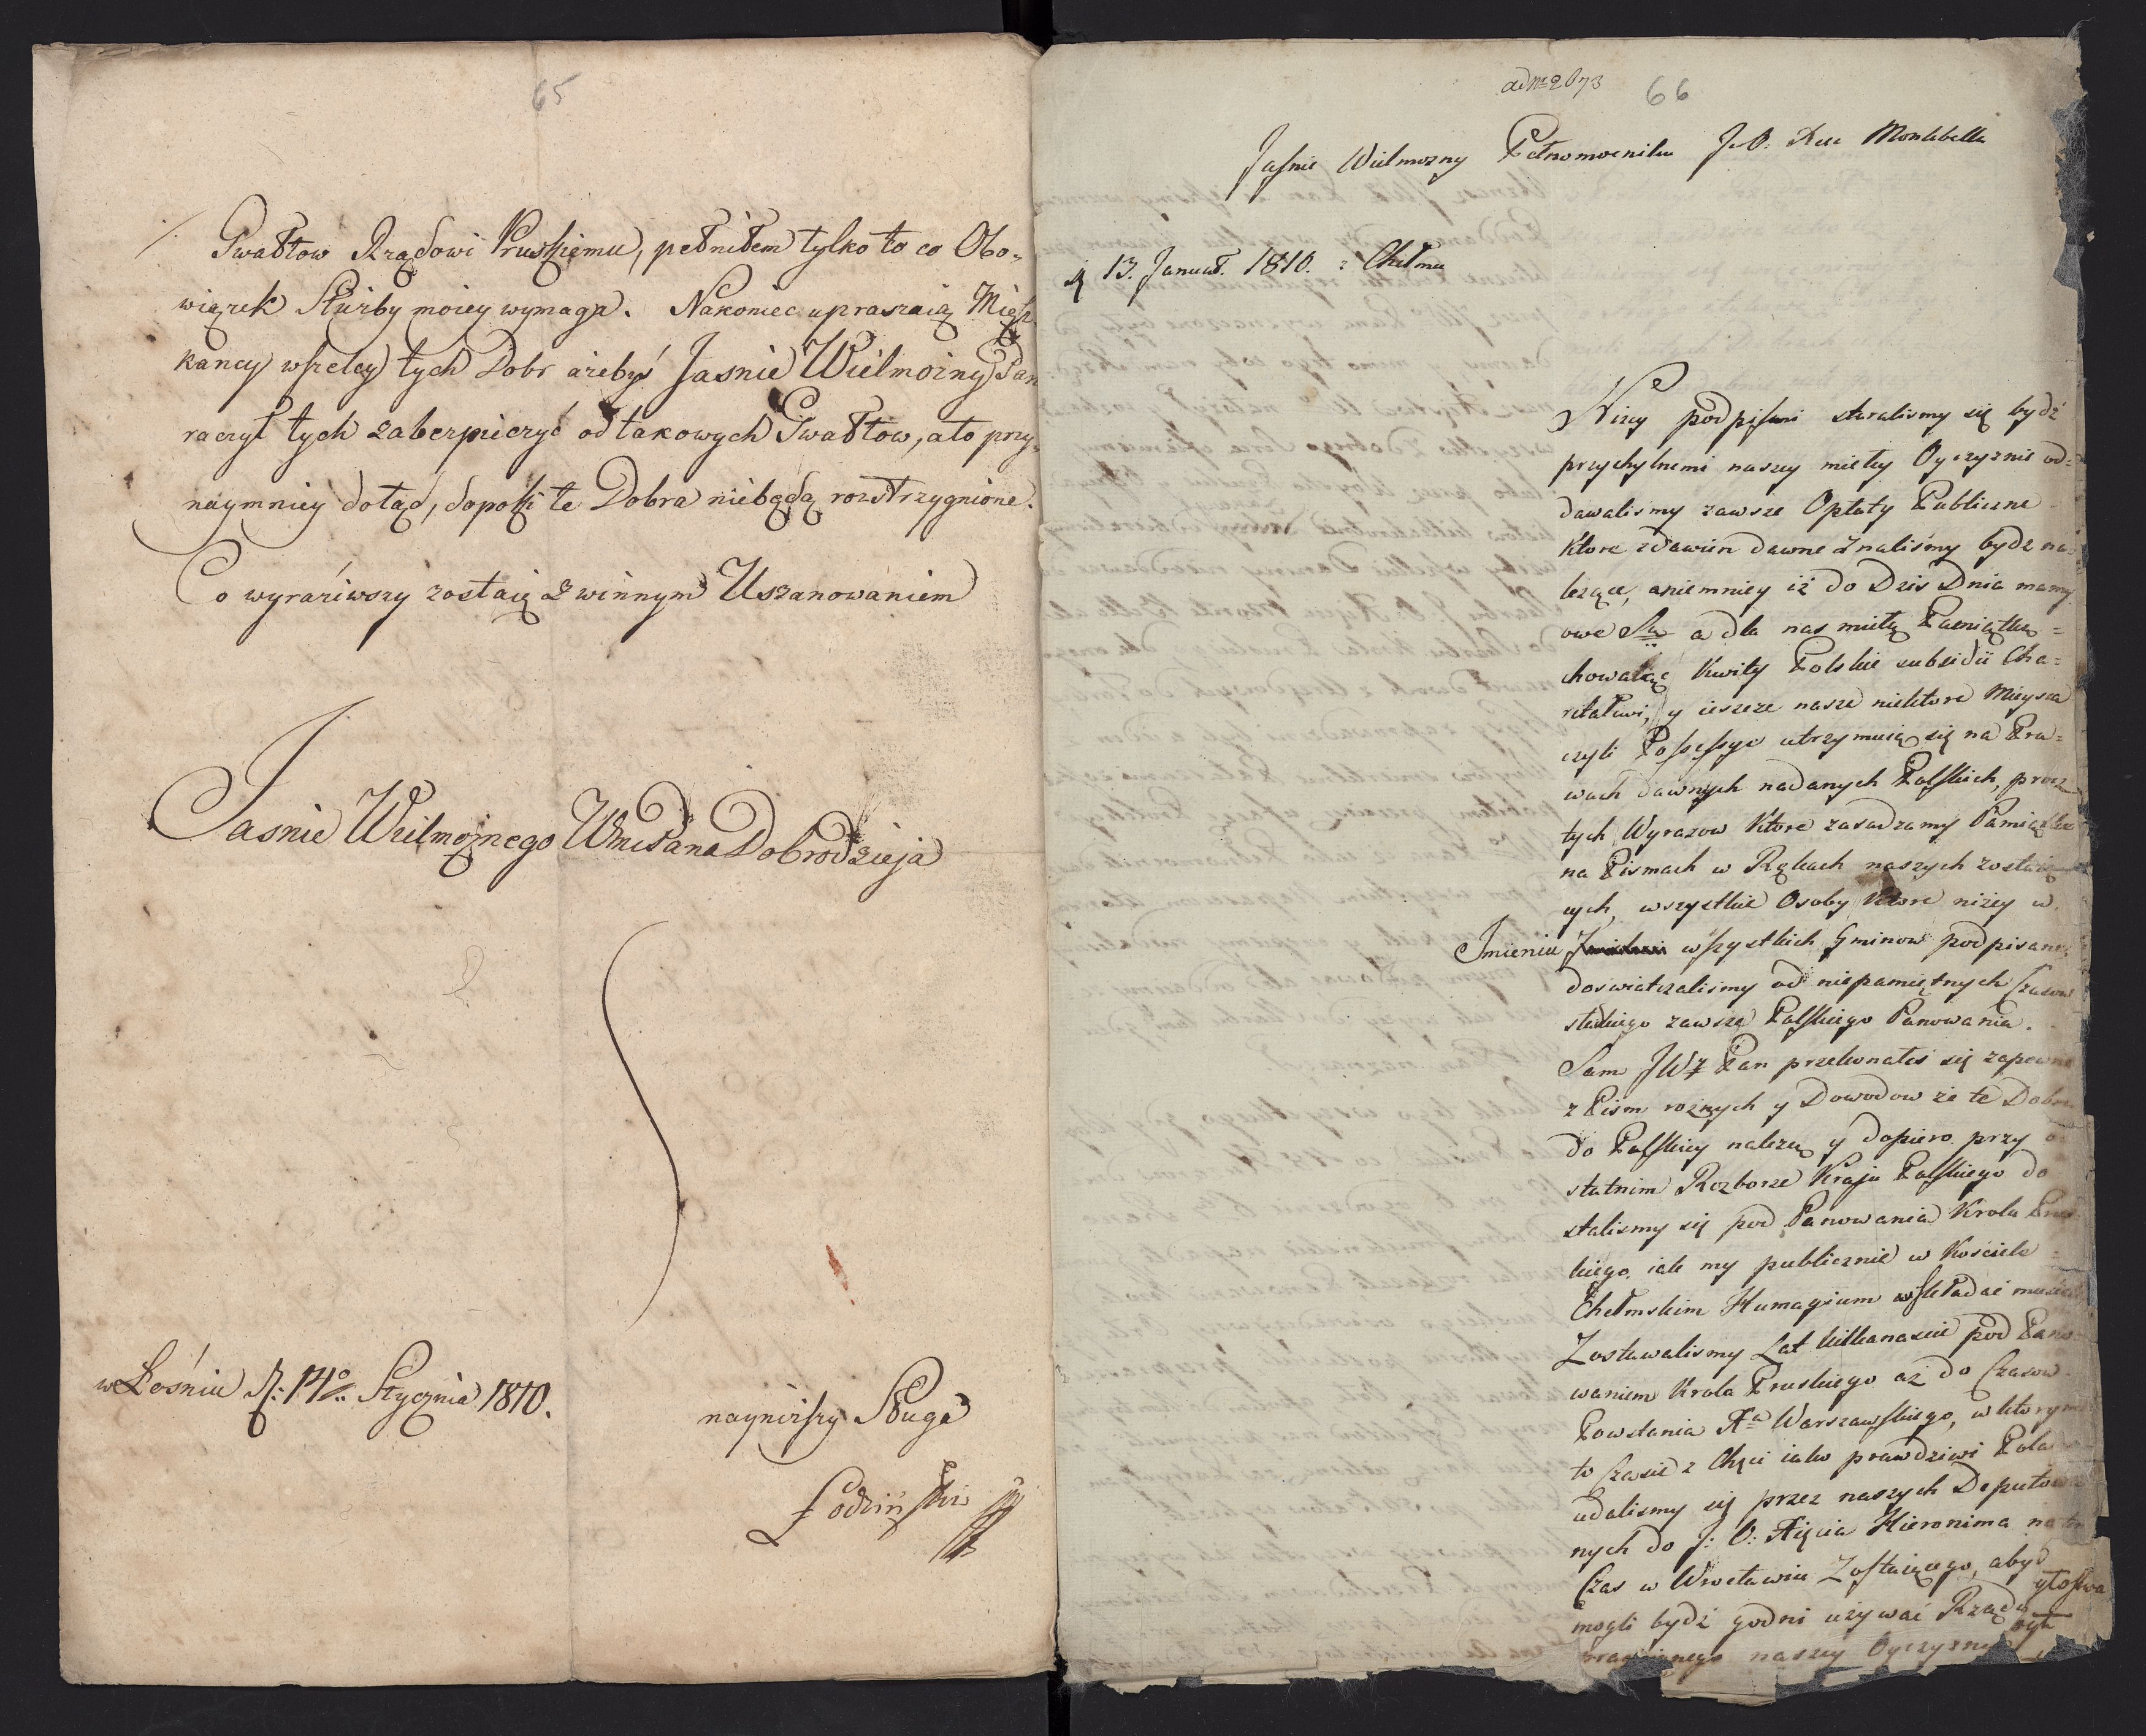 65
Gwałtow Rządowi Pruskiemu, pełniłem tylko to co Obo-
wiązek Służby moiey wymaga. Nakoniec upraszaią Miesz
kancy wszelcy tych Dobr ażebyś Jasnie Wielmożny Pan
raczył tych zabezpieczyć od takowych Gwałtow, a to przy-
naymniey dotąd, dopoki te Dobra niebędą rozstrzygnione.
Co wyraziwszy zostaię z winnym Uszanowaniem
Jasnie Wielmożnego WmcPana Dobrodzieja
w Łośniu d: 14o Stycznia 1810.
nayniższy Sługa
Łodziński
ad Nr 2673
66
Jaśnie Wielmozny Pełnomocniku J.O. Montebello
13. Januar. 1810. z Chełmu
Niżey podpisani staralismy się bydź
przychylnemi naszey miłey Oyczyznie od=
dawalismy zawsze Opłaty Publiczne
Ktore zdawien dawne znaliśmy bydz na
leżące, aniemniey iż do Dzis Dnia mamy
owe a dla nas miłą Pamiątkę =
chowaiąc Kwity Polskie subsidii Cha=
ritativi, y ieszcze nasze niektore Mieysca
czyli Possessye utrzymuią się na Pra=
wach dawnych nadanych Polskich, procz
tych Wyrazow Ktore zasadzamy Pamiątke
na Pismach w Rękach naszych zostaią
cych, wszystkie Osoby Ktore niżey w
Imieniu wszystkich Gminow podpisane
doswiatczalismy od niepamiętnych Czasow
słodkiego zawsze Polskiego Panowania.
Sam JWż Pan przekonałeś się zapewne
z Pism roznych y Dowodow że te Dobra
do Polskiey należą y dopiero przy o
statnim Rozborze Kraju Polskiego do
stalismy się pod Panowania Krola Prus
kiego, iak my publicznie w Kościele =
Chełmskim Humagium wskładać musieli
Zostawalismy Lat kilkanascie pod Pano
waniem Krola Pruskiego aż do Czasow
Powstania Xa Warszawskiego, w ktorym
to Czasie z Chęci iako prawdziwi Polacy
udalismy się przez naszych Deputowa
nych do J: O: Xięcia Hieronima na ten
Czas w Wrocławiu Zostaiącego, abyś
mogli bydź godni używać Rządu
naszey Oyczyzny